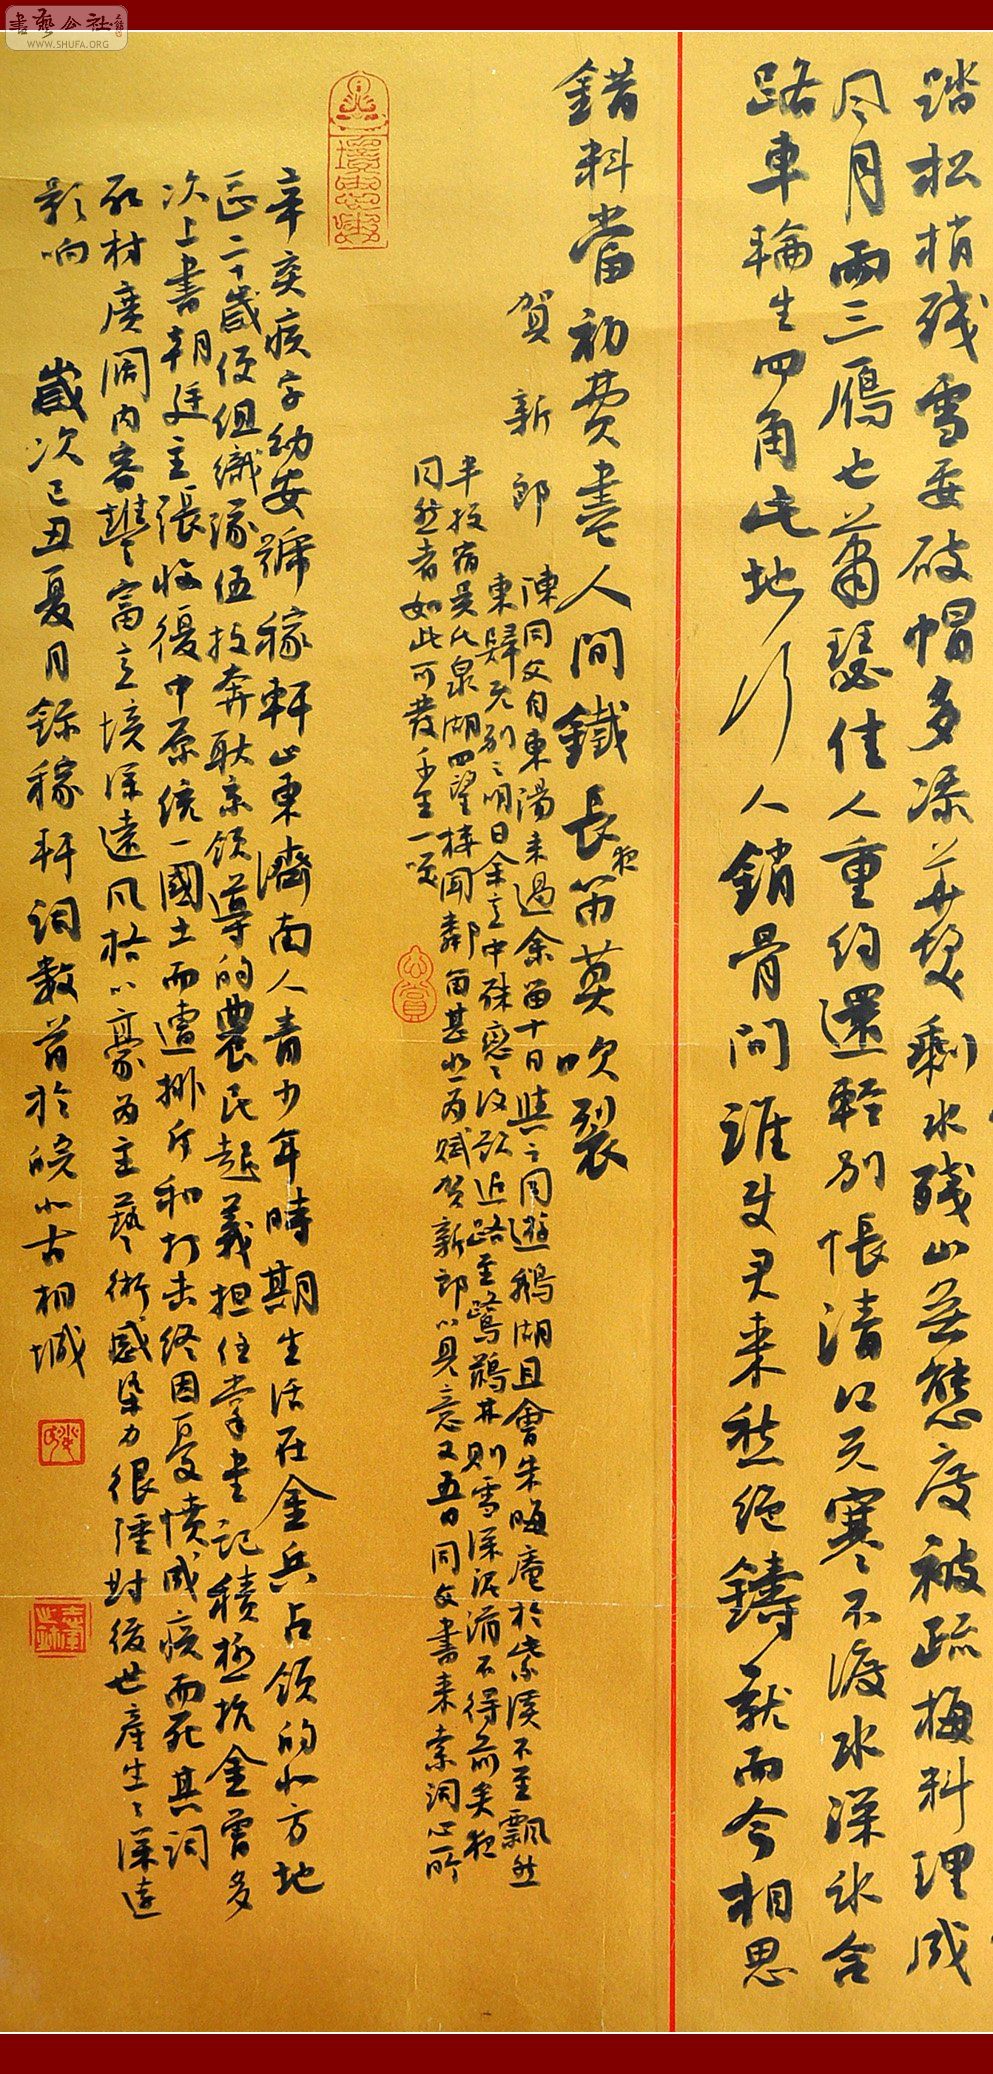 踏松梢殘雪要破帽多添華髮剩水殘山無態度被疏梅料理成
風月兩三雁也蕭瑟佳人重約還輕別悵清江天寒不渡水深冰合
路車輪生四角此地行人銷骨問誰使君來愁絕鑄就而今相思
錯料當初費盡人間鐵長夜笛莫吹裂
賀新郎
陳同父自東陽來過余留十日與之同遊鵝湖且會朱晦庵於紫溪不至飄然
東歸既別之明日余意中殊戀戀復欲追路至鷺鶿林則雪深泥滑不得前矣夜
半投宿吳氏泉湖四望樓聞鄰笛甚悲為賦賀新郎以見意又五日同父書來索詞心所
同然者如此可發千里一笑
辛棄疾字幼安號稼軒山東濟南人青少年時期生活在金兵占領的北方地
區二十歲便組織隊伍投奔耿京領導的農民起義担任掌書記積極抗金曾多
次上書朝廷主張恢復中原統一國土而遭排斥和打击終因憂憤成疾而死其詞
取材廣闊内容豐富意境深遠風格以豪為主藝術感染力很强對後世產生了深遠
影响
歲次己丑夏月錄稼軒詞数首於皖北古相城
書藝公社
WWW.SHUFA.ORG